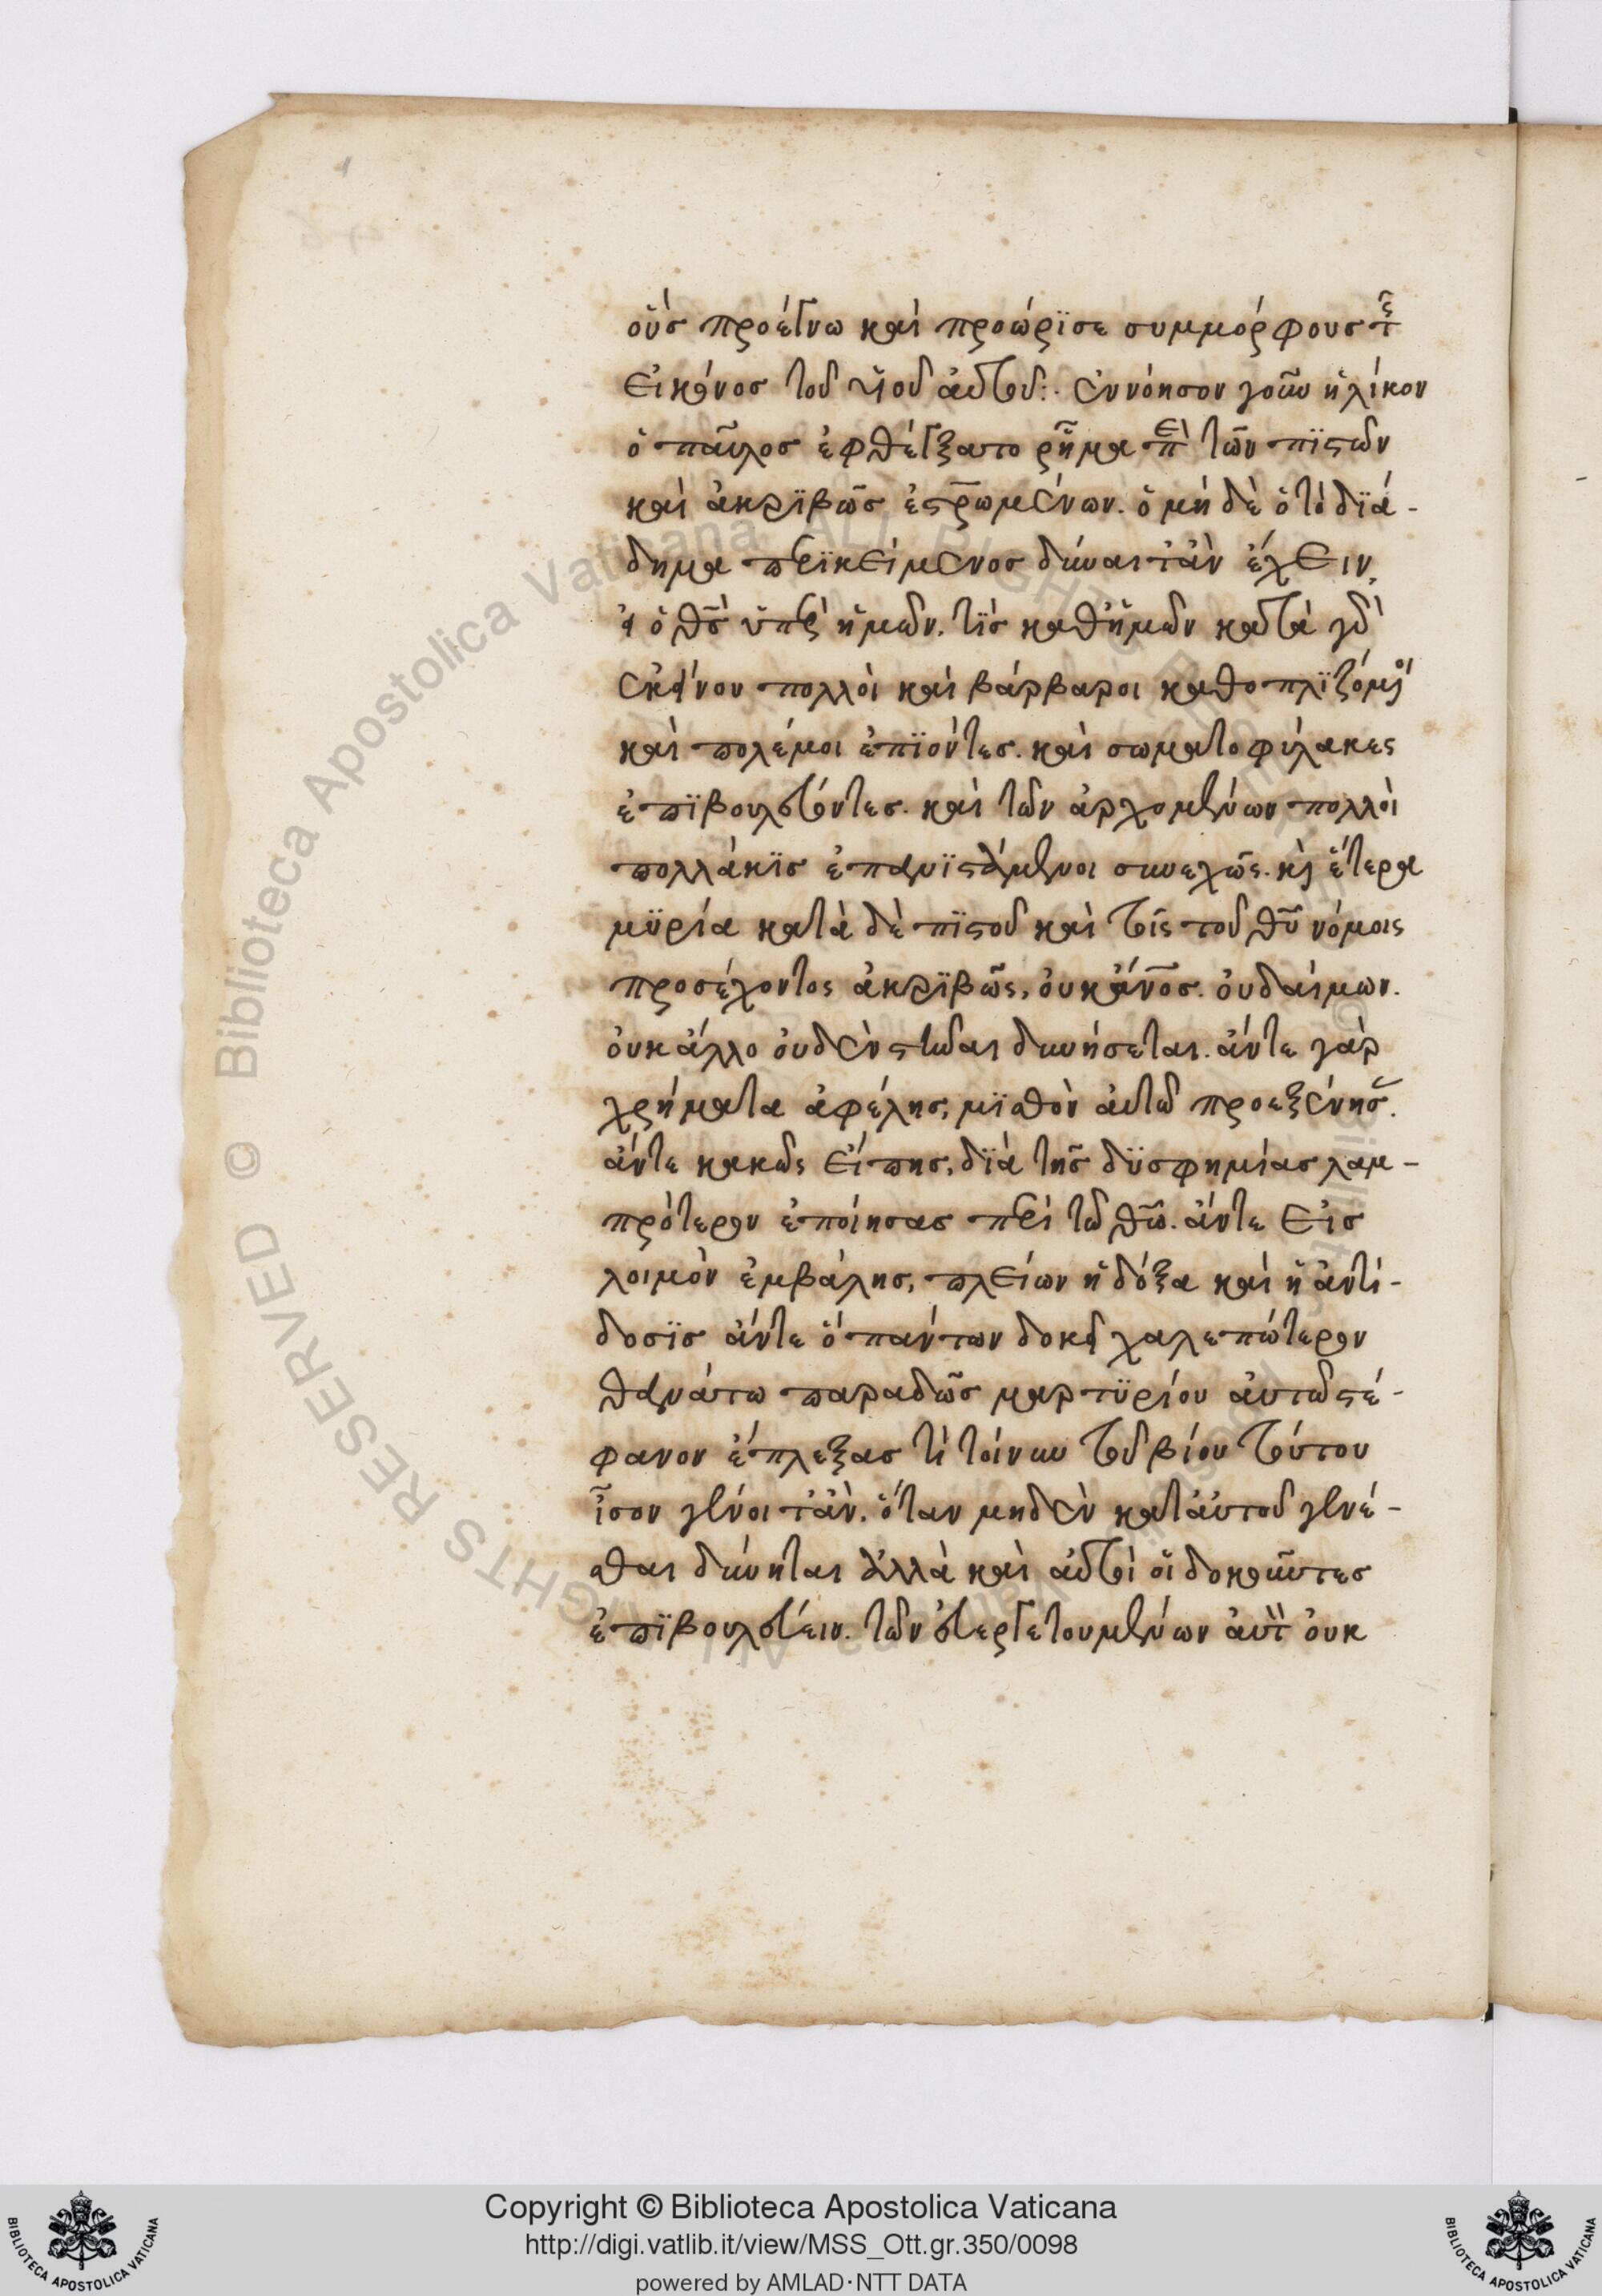 οὓς προέγνω καὶ προώρϊσε συμμόρφους τ͂
εἰκόνος τοῦ υἱοῦ ἀυτοῦ:· ἐννόησον γοῦν ἡλίκον
ὁ παῦλος ἐφθέγξατο ρῆμα ἐπὶ τῶν πϊστῶν
καὶ ἀκρϊβῶς ἐστρωμένων. ὃ μὴ δὲ ὁ τὸ δϊά-
δημα περϊκείμενος δύναιτ' ἂν ἔχειν,
εἰ ὁ θς̄ ὑπὲρ ἡμῶν. τϊς καθ' ἡμῶν κατὰ γὰρ
ἐκείνου πολλοὶ καὶ βάρβαροι καθοπλϊζόμενοι
καὶ πολέμοι ἐπϊόντες. καὶ σωματοφύλακες
ἐπϊβουλεύοντες. καὶ τῶν ἀρχομένων πολλοὶ
πολλάκϊς ἐπανϊστάμενοι συνεχῶς. κὶ ἕτερα
μϋρία κατὰ δὲ πϊστοῦ καὶ τοῖς τοῦ θῡ νόμοις
προσέχοντος ἀκρϊβῶς, ὀυκ ἄνος̄. ὀυ δαίμων.
ὀυκ ἄλλο ὀυδὲν στῆναι δυνήσεται. ἄντε γὰρ
χρήματα ἀφέλης, μϊσθὸν ἀυτῶ προεξένησ.
ἄντε κακῶς εἴπης, δϊὰ τῆς δϋσφημίας λαμ-
πρότερον ἐποίησας περὶ τῶ θῶ. ἄντε εἰς
λοιμὸν ἐμβάλης, πλείων ἡ δόξα καὶ ἡ ἀντί-
δοσϊς ἄντε ὃ πάντων δοκεῖ χαλεπώτερον
θανάτω παραδῶς μαρτϋρίου ἀυτῶ στέ-
φανον ἔπλεξας τί τοίνυν τοῦ βίου τούτου
ἶσον γένοιτ' ἂν. ὅταν μηδὲν κατ' ἀυτοῦ γενέ-
σθαι δύνηται ἀλλὰ καὶ ἀυτοὶ οἱ δοκοῦντες
ἐπϊβουλεύειν. τῶν ἐυεργετουμένων ἀυτ̀ ὀυκ
Copyright © Biblioteca Apostolica Vaticana
http://digi.vatlib.it/view/MSS_Ott.gr.350/0098
powered by AMLAD·NTT DATA